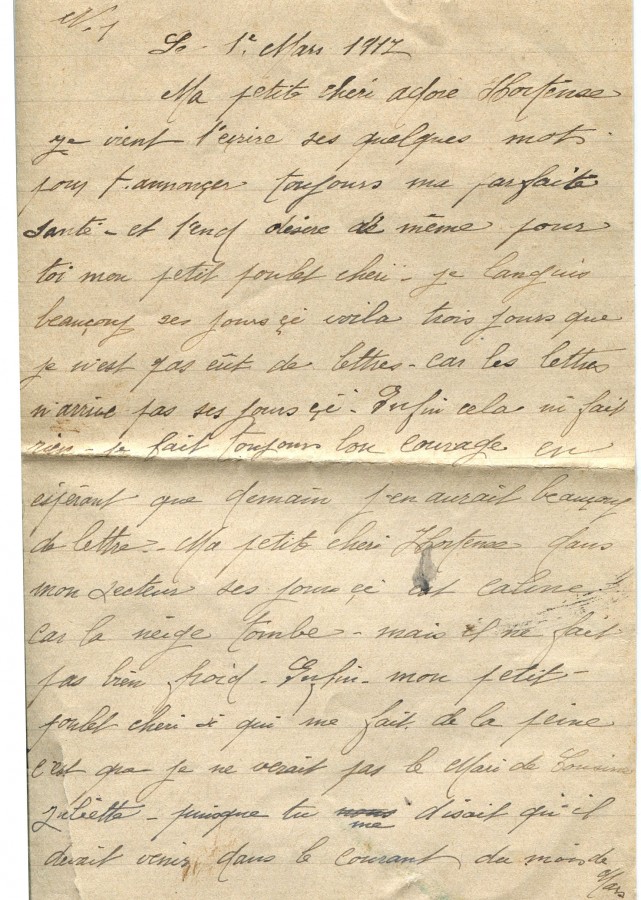 N. 1
Le - 1e Mars 1917
Ma petite chéri adoré Hortense
je vient t'écrire ses quelques mot.
pour t'annonçer toujours ma parfaite
santé - et désire de même pour
toi mon petit poulet chéri - je languis
beaucoup ses jours çi voila trois jours que
je n'est pas eût de lettres - car les lettres
n'arrive pas ses jours çi - Enfin cela ni fait
rien - je fait toujours bon courage en
espérant que demain j'en aurait beaucoup
de lettre - Ma petite chéri Hortense dans
mon secteur ses jours çi est calme
car la neige tombe - mais il ne fait
pas bien froid - Enfin - mon petit -
poulet chéri se qui me fait de la peine
c'est que je ne verait pas le Mari de Cousine
Juliette - puisque tu me disait qu'il
devait venir dans le courant du mois de
Mars